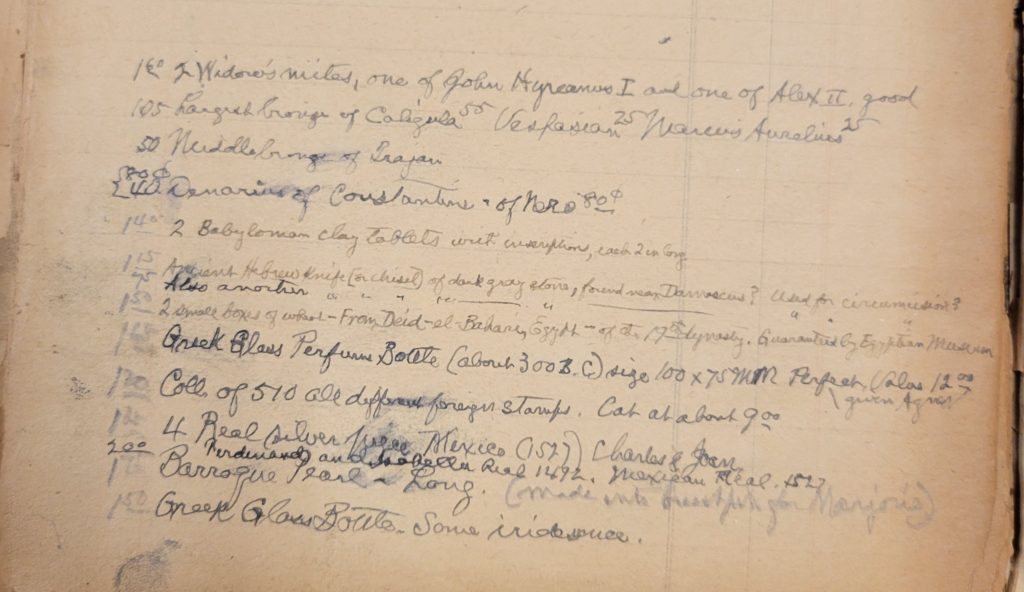 1⁶⁰ 2 Widow's mites, one of John Hyrcanus I and one of Alex II. good
105 Largest bronze of Caligula ⁵⁵ Vespasian ²⁵ Marcus Aurelius ²⁵
50 Middle bronze of Trajan
80¢ 40 Denarius of Constantine - of Nero 80¢
1⁴⁰ 2 Babylonian clay tablets with inscriptions, each 2 in long
Ancient Hebrew Knife (or chisel) of dark gray stone, found near Damascus? Used for circumcision?
Also another " " " " " " "
2 small boxes of wheat - From Deid-el-Bahari, Egypt - of the 17th dynasty. Guaranteed by Egyptian Museum
Greek Glass Perfume Bottle (about 300 B.C.) size 100 x 75 MM Perfect. Value 12⁰⁰
(given Agnes)
Coll. of 510 all different foreign stamps. Cat at about 9⁰⁰
4 Real silver piece Mexico (1527) Charles & Joan
2⁰⁰ Ferdinand and Isabella Real 1492. Mexican Real. 1527
Barroque Pearl - Long. (made into breastpin for Marjorie)
1⁵⁰ Greek Glass Bottle - Some iridesence.